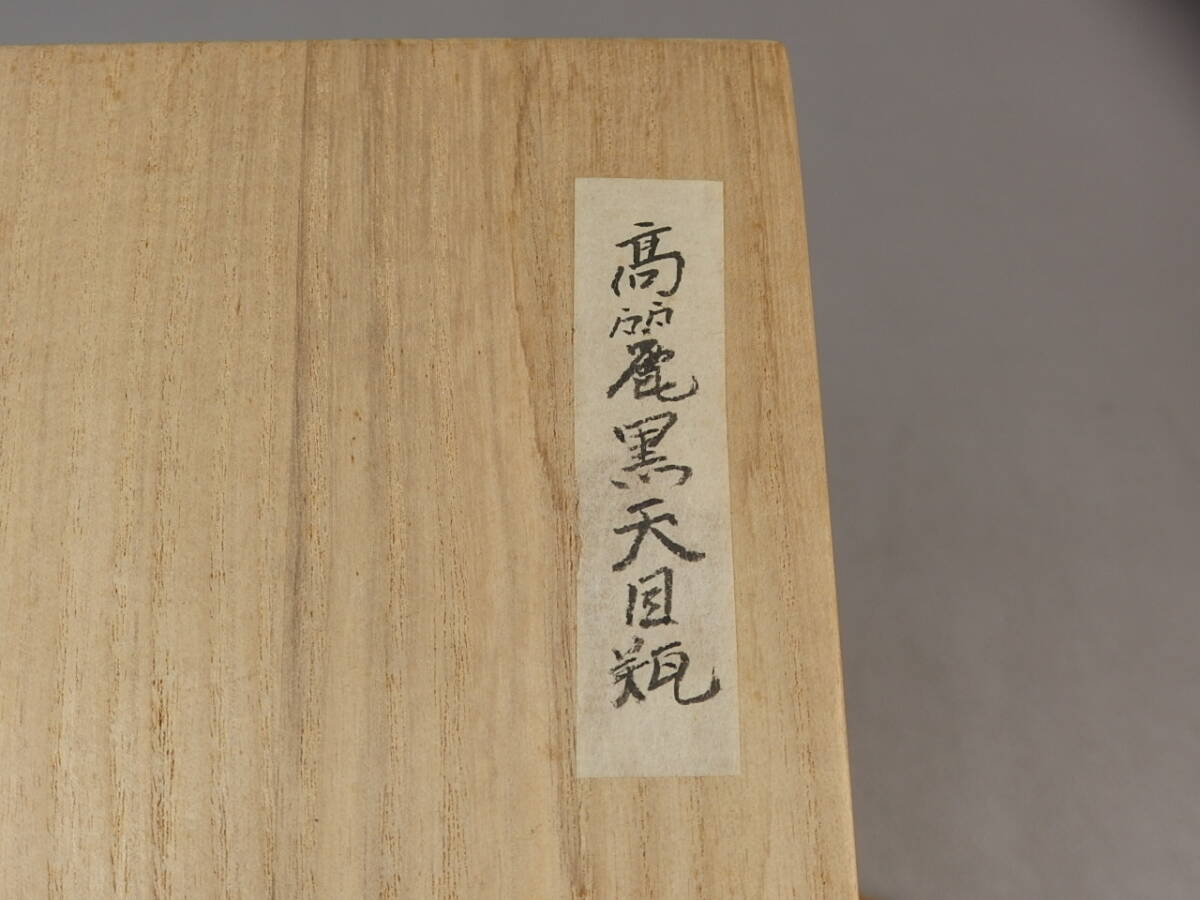 髙麗黒天目瓶